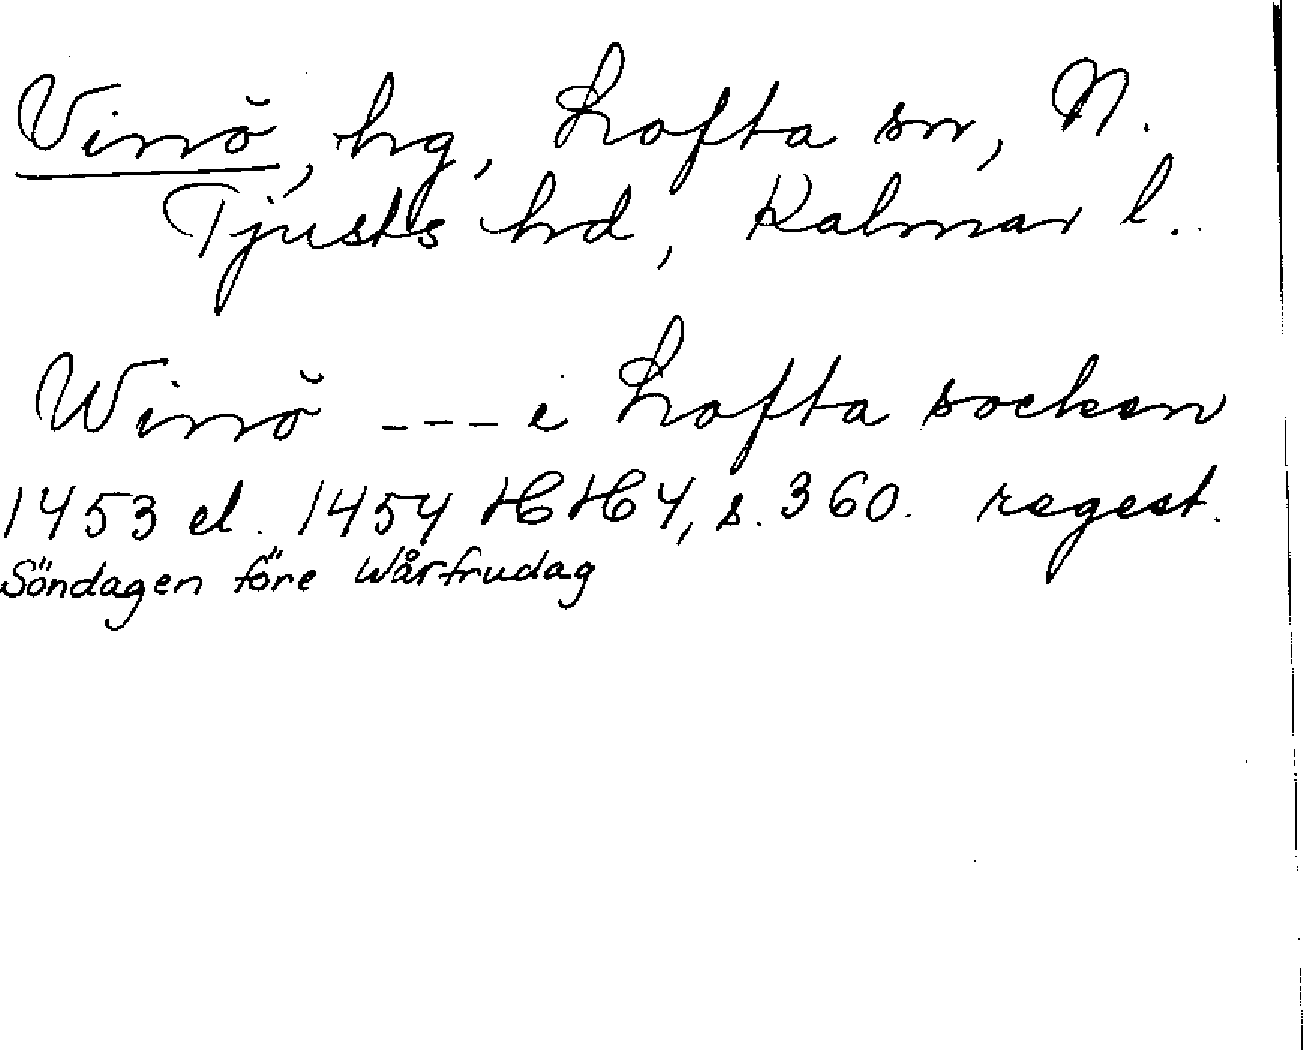 Vinö, hg, Lofta sn, N.
Tjusts hd, Kalmar l.
Winö --- i Lofta socken
1453 el. 1454 HH 4, s. 360. regest.
Söndagen före Wårfrudag